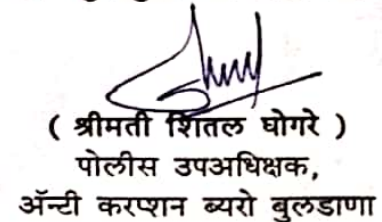 ( श्रीमती शितल घोगरे )
पोलीस उपअधिक्षक,
ॲन्टी करप्शन ब्यरो बुलडाणा